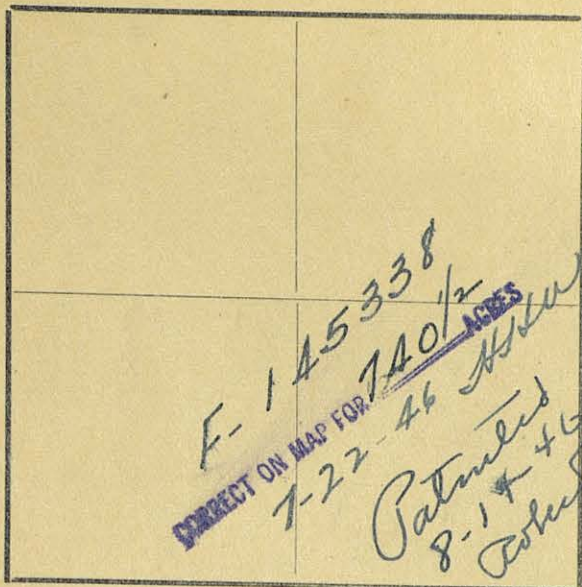 F-145338
CORRECT ON MAP FOR 740 1/2 ACRES
7-22-46
Patented
8-14-46